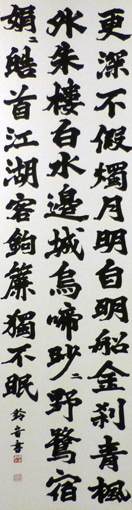 更深不假燭月明自明船金刹青楓
外朱樓白水邊城烏啼眇〻野鷺宿
娟〻皓首江湖客鉤簾獨不眠 鈴音書